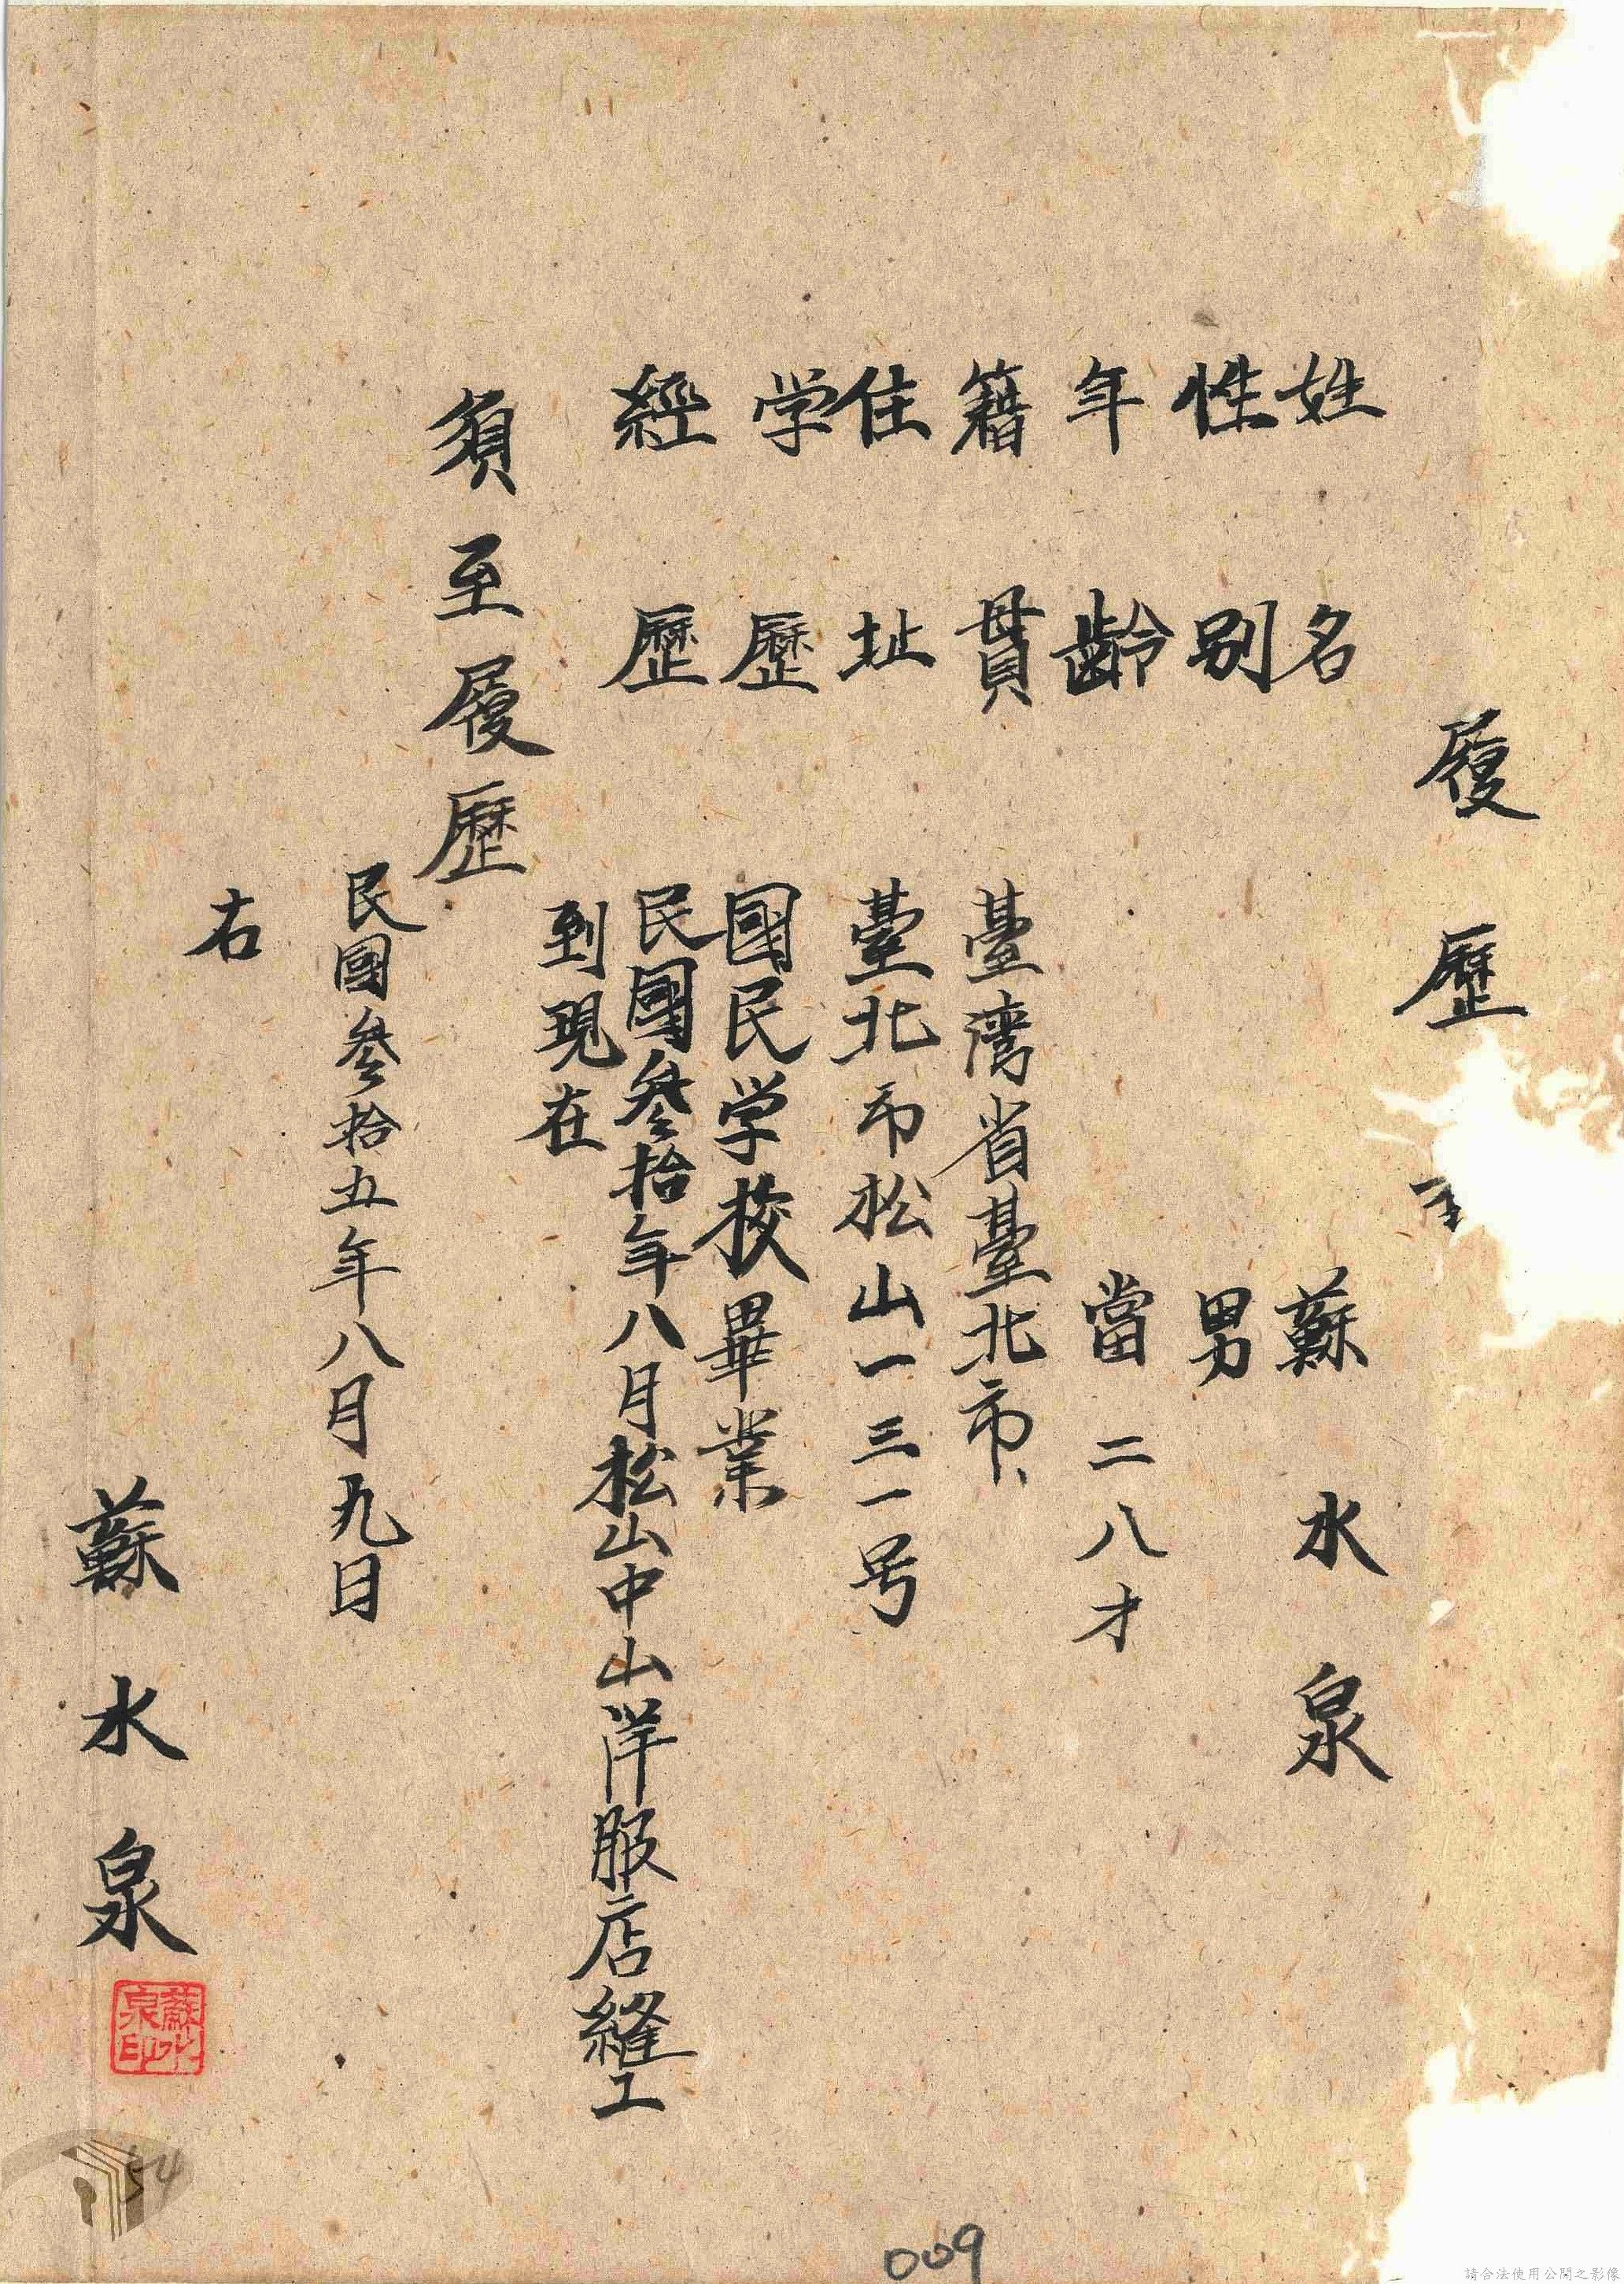 履歷
姓名 蘇水泉
性別 男
年齡 當二八才
籍貫 臺湾省臺北市
住址 臺北市松山一三一号
学歷 國民学校畢業
經歷 民國参拾年八月松山中山洋服店縫工
到現在
須至履歷
民國参拾五年八月九日
右
蘇水泉
蘇水泉印
54
009
請合法使用公開之影像